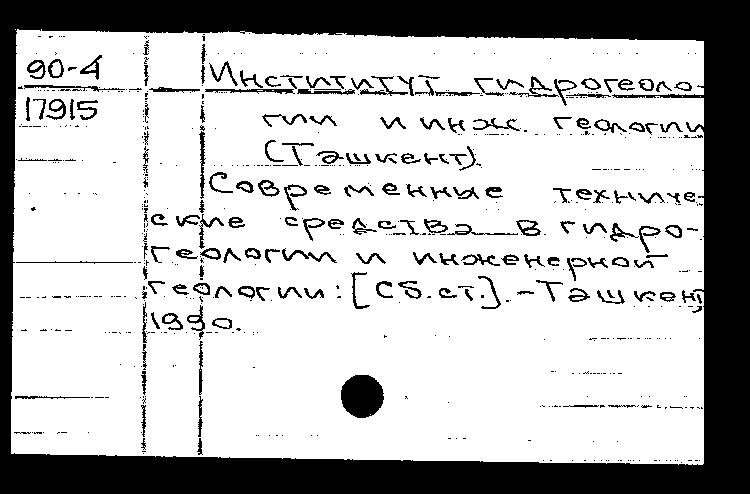 90-4
17915
Инстититут гидрогеоло-
гии и инж. геологии
(Ташкент).
Современные техниче-
ские средства в гидро-
геологии и инженерной
геологии: [Сб.ст.]. - Ташкент,
1990.